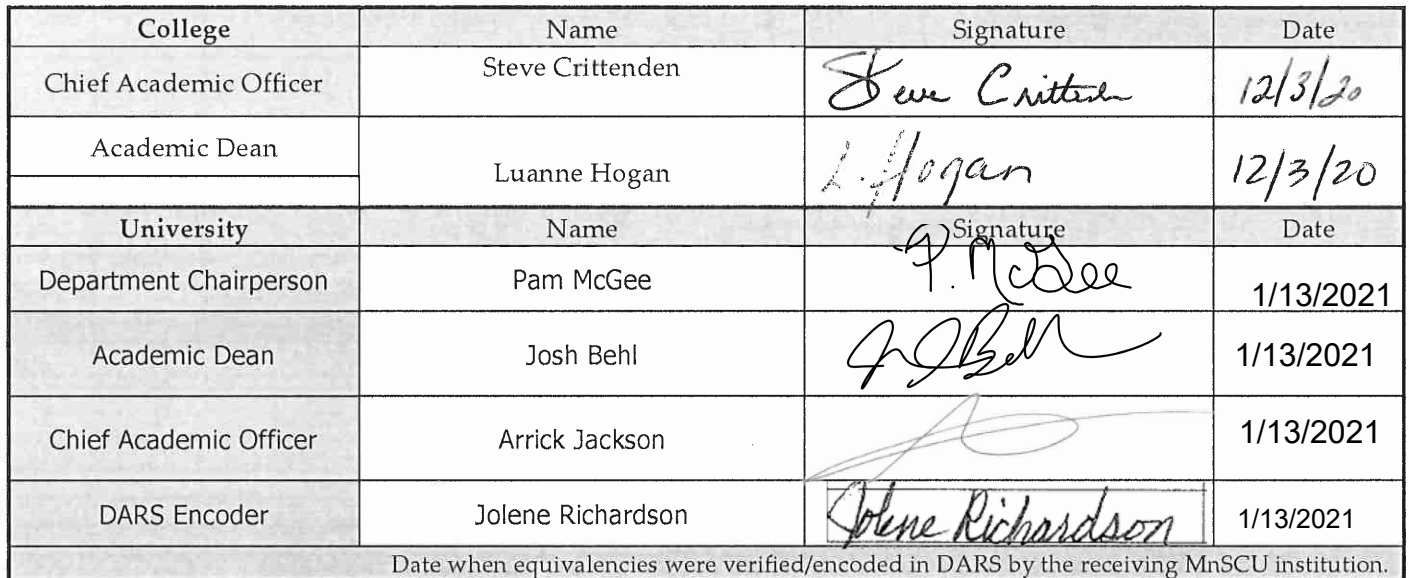 College Name Signature Date
Chief Academic Officer Steve Crittenden Steve Crittenden 12/3/20
Academic Dean Luanne Hogan L. Hogan 12/3/20
University Name Signature Date
Department Chairperson Pam McGee P. McGee 1/13/2021
Academic Dean Josh Behl 1/13/2021
Chief Academic Officer Arrick Jackson 1/13/2021
DARS Encoder Jolene Richardson Jolene Richardson 1/13/2021
Date when equivalencies were verified/encoded in DARS by the receiving MnSCU institution.